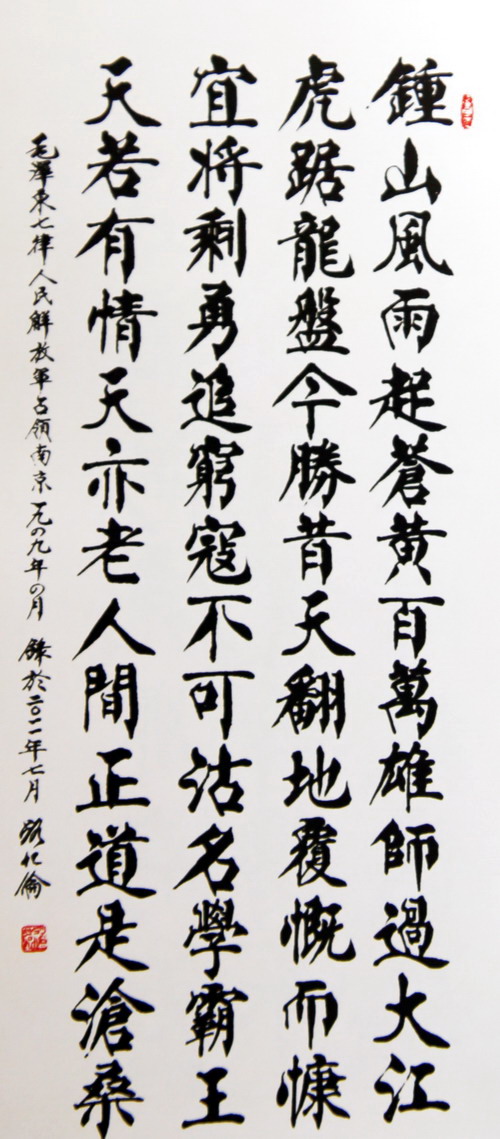 鍾山風雨起蒼黄百萬雄師過大江
虎踞龍盤今勝昔天翻地覆慨而慷
宜將剩勇追窮寇不可沽名學霸王
天若有情天亦老人間正道是滄桑
毛澤東七律人民解放軍占領南京一九四九年四月 錄於二〇一一年七月